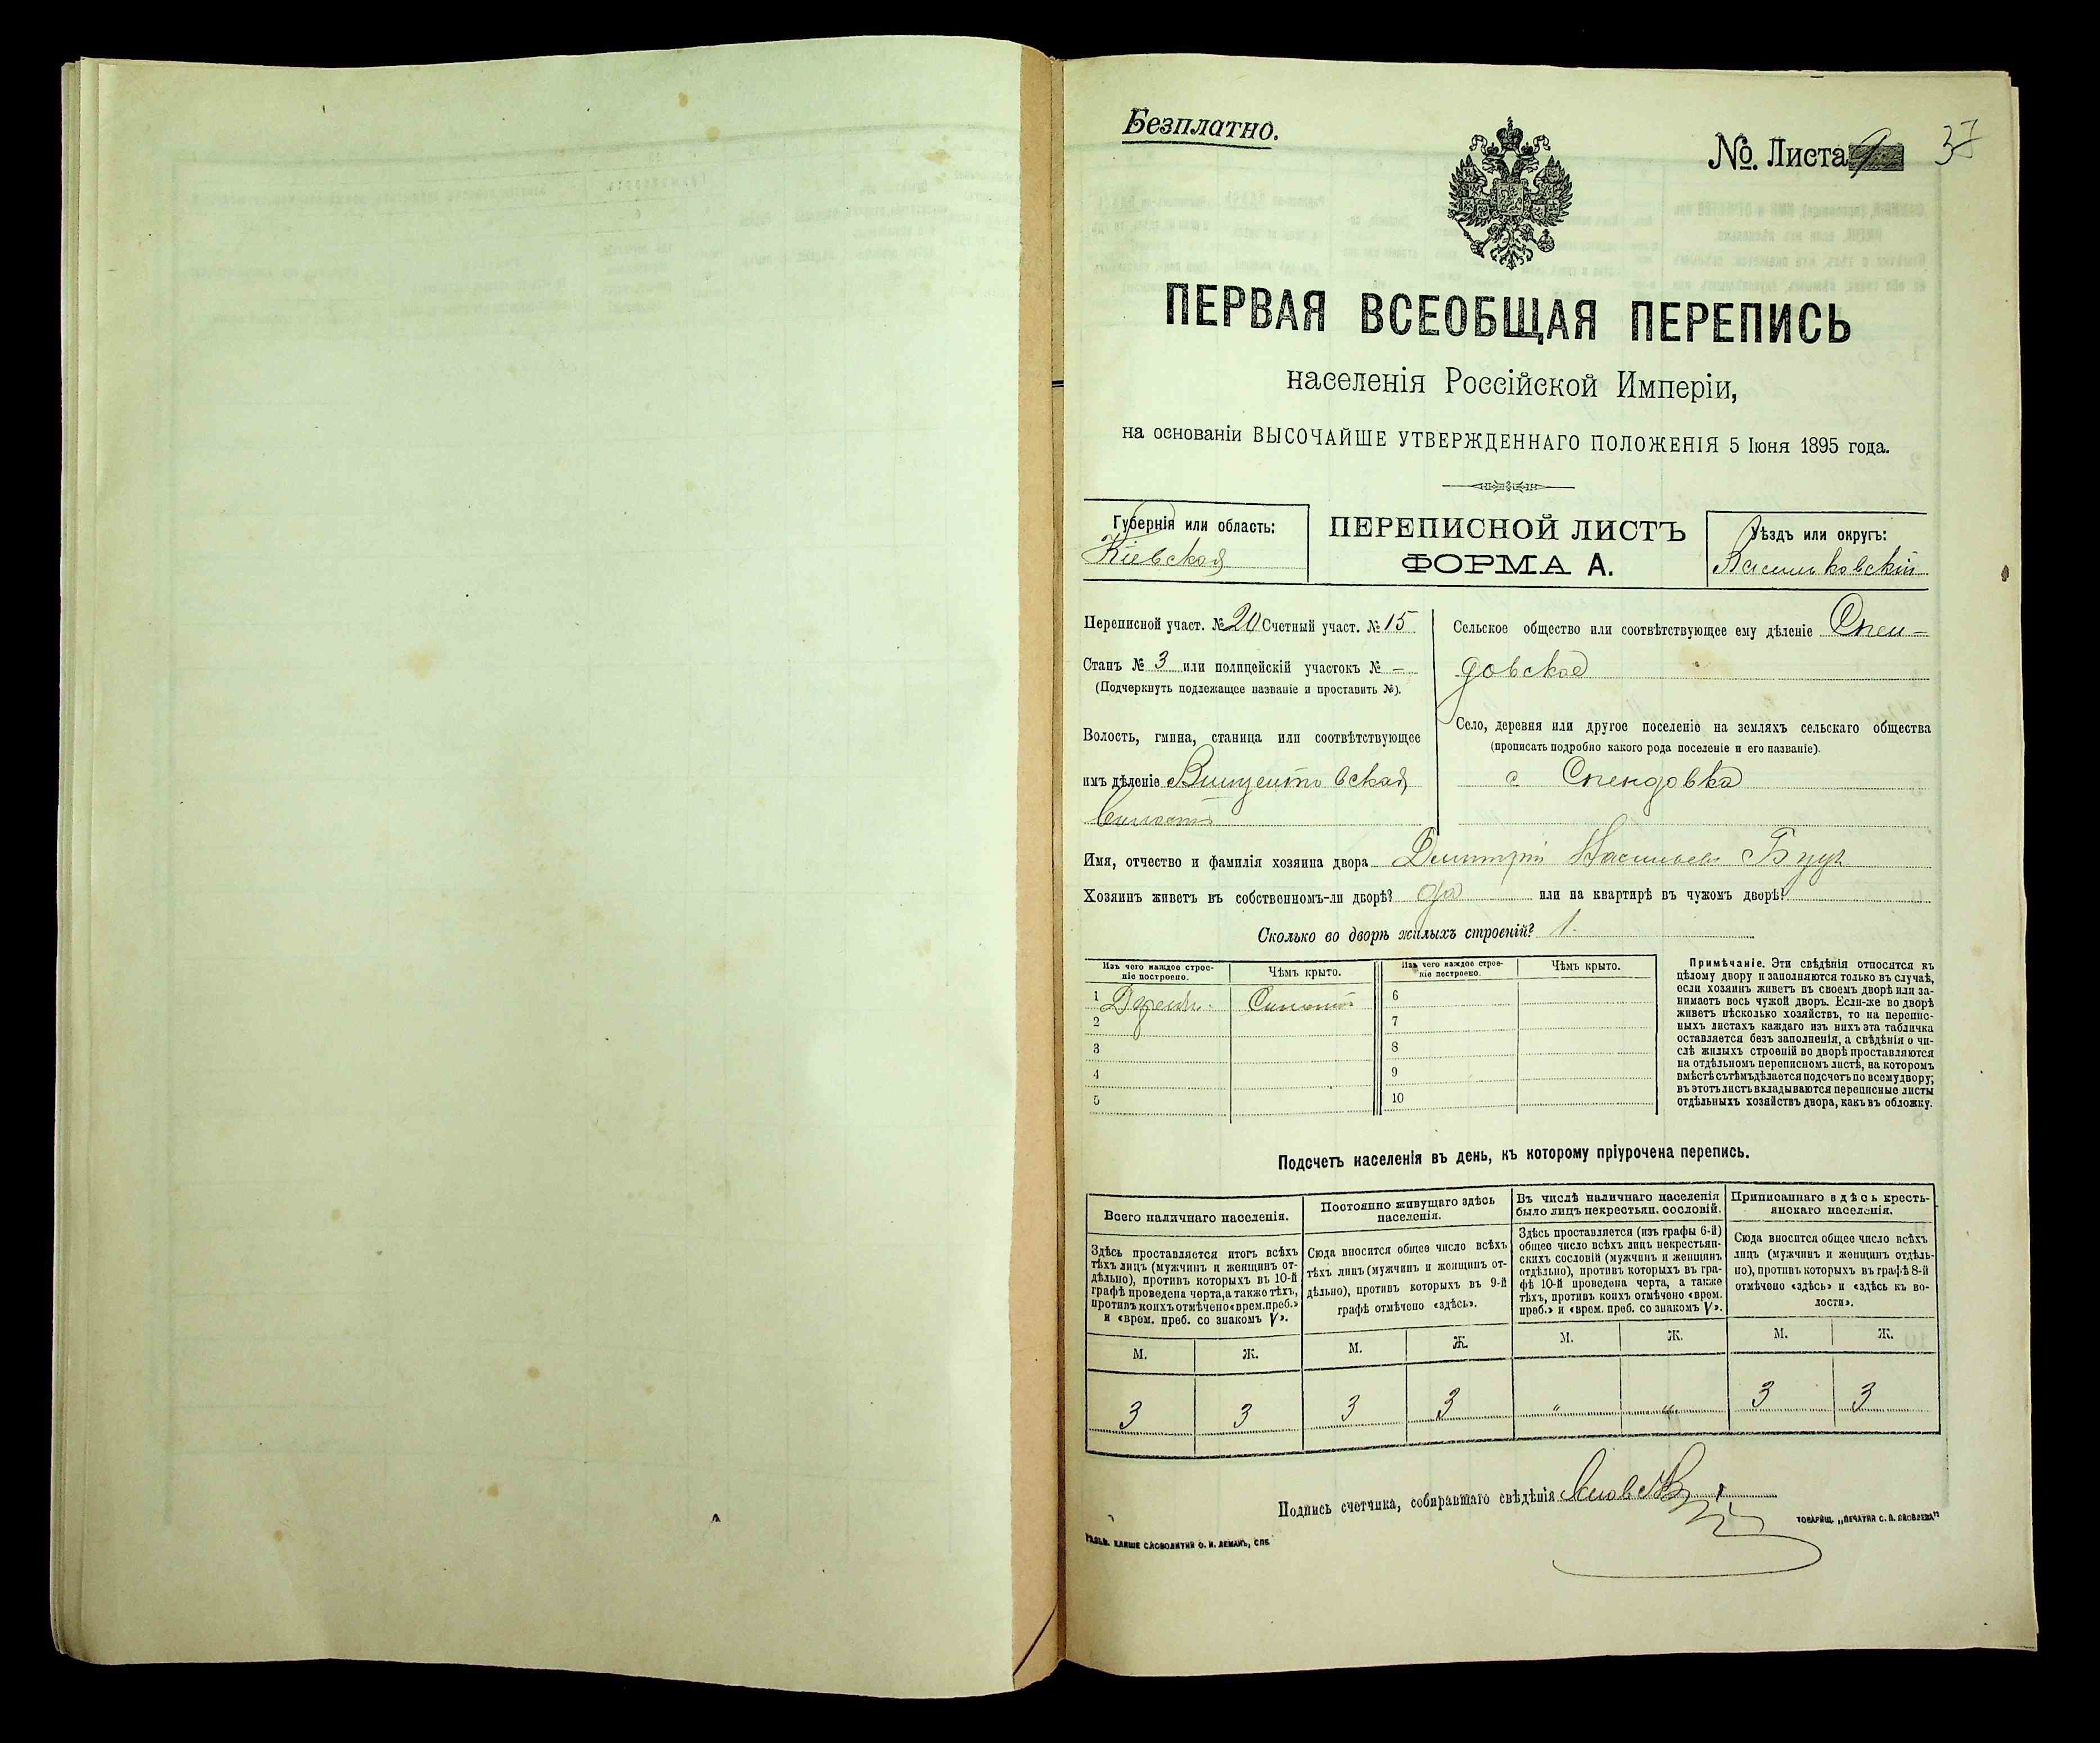 Безплатно.
№ Листа 9
37
ПЕРВАЯ ВСЕОБЩАЯ ПЕРЕПИСЬ
населенія Россійской Имперіи,
на основаніи ВЫСОЧАЙШЕ УТВЕРЖДЕННАГО ПОЛОЖЕНІЯ 5 Іюня 1895 года.
Губернія или область:
Кіевская
ПЕРЕПИСНОЙ ЛИСТЪ
ФОРМА А.
Уѣздъ или округъ:
Васильковскій
Переписной участ. № 20 Счетный участ. № 15
Станъ № 3 или полицейскій участокъ № –
(Подчеркнуть подлежащее названіе и проставить №).
Волость, гмина, станица или соотвѣтствующее
имъ дѣленіе Винцентовская
волость
Сельское общество или соотвѣтствующее ему дѣленіе Спен-
довское
Село, деревня или другое поселеніе на земляхъ сельскаго общества
(прописать подробно какого рода поселеніе и его названіе).
с Спендовка
Имя, отчество и фамилія хозяина двора Дмитрій Васильевъ
Хозяинъ живетъ въ собственномъ-ли дворѣ? да или на квартирѣ въ чужомъ дворѣ?
Сколько во дворѣ жилыхъ строеній? 1.
Изъ чего каждое строе-
ніе построено.
Чѣмъ крыто.
Изъ чего каждое строе-
ніе построено.
Чѣмъ крыто.
1
6
2
7
3
8
4
9
5
10
Примѣчаніе. Эти свѣдѣнія относятся къ
цѣлому двору и заполняются только въ случаѣ,
если хозяинъ живетъ въ своемъ дворѣ или за-
нимаетъ весь чужой дворъ. Если-же во дворѣ
живетъ нѣсколько хозяйствъ, то на перепис-
ныхъ листахъ каждаго изъ нихъ эта табличка
оставляется безъ заполненія, а свѣдѣнія о чи-
слѣ жилыхъ строеній во дворѣ проставляются
на отдѣльномъ переписномъ листѣ, на которомъ
вмѣстѣ съ тѣмъ дѣлается подсчетъ по всему двору;
въ этотъ листъ вкладываются переписные листы
отдѣльныхъ хозяйствъ двора, какъ въ обложку.
Подсчетъ населенія въ день, къ которому пріурочена перепись.
Всего наличнаго населенія.
Постоянно живущаго здѣсь
населенія.
Въ числѣ наличнаго населенія
было лицъ некрестьян. сословій.
Приписаннаго здѣсь кресть-
янскаго населенія.
Здѣсь проставляется итогъ всѣхъ
тѣхъ лицъ (мужчинъ и женщинъ от-
дѣльно), противъ которыхъ въ 10-й
графѣ проведена черта, а также тѣхъ,
противъ коихъ отмѣчено «врем. преб.»
и «врем. преб. со знакомъ V».
Сюда вносится общее число всѣхъ
тѣхъ лицъ (мужчинъ и женщинъ от-
дѣльно), противъ которыхъ въ 9-й
графѣ отмѣчено «здѣсь».
Здѣсь проставляется (изъ графы 6-й)
общее число всѣхъ лицъ некрестьян-
скихъ сословій (мужчинъ и женщинъ
отдѣльно), противъ которыхъ въ гра-
фѣ 10-й проведена черта, а также
тѣхъ, противъ коихъ отмѣчено «врем.
преб.» и «врем. преб. со знакомъ V».
Сюда вносится общее число всѣхъ
лицъ (мужчинъ и женщинъ отдѣль-
но), противъ которыхъ въ графѣ 8-й
отмѣчено «здѣсь» и «здѣсь къ во-
лости».
М. Ж. М. Ж. М. Ж. М. Ж.
3 3 3 3 " " 3 3
Подпись счетчика, собиравшаго свѣдѣнія
КЛИШЕ СЛОВОЛИТНИ О. И. ЛЕМАНЪ, СПБ
ТОВАРИЩ. „ПЕЧАТНЯ С. П. ЯКОВЛЕВА“